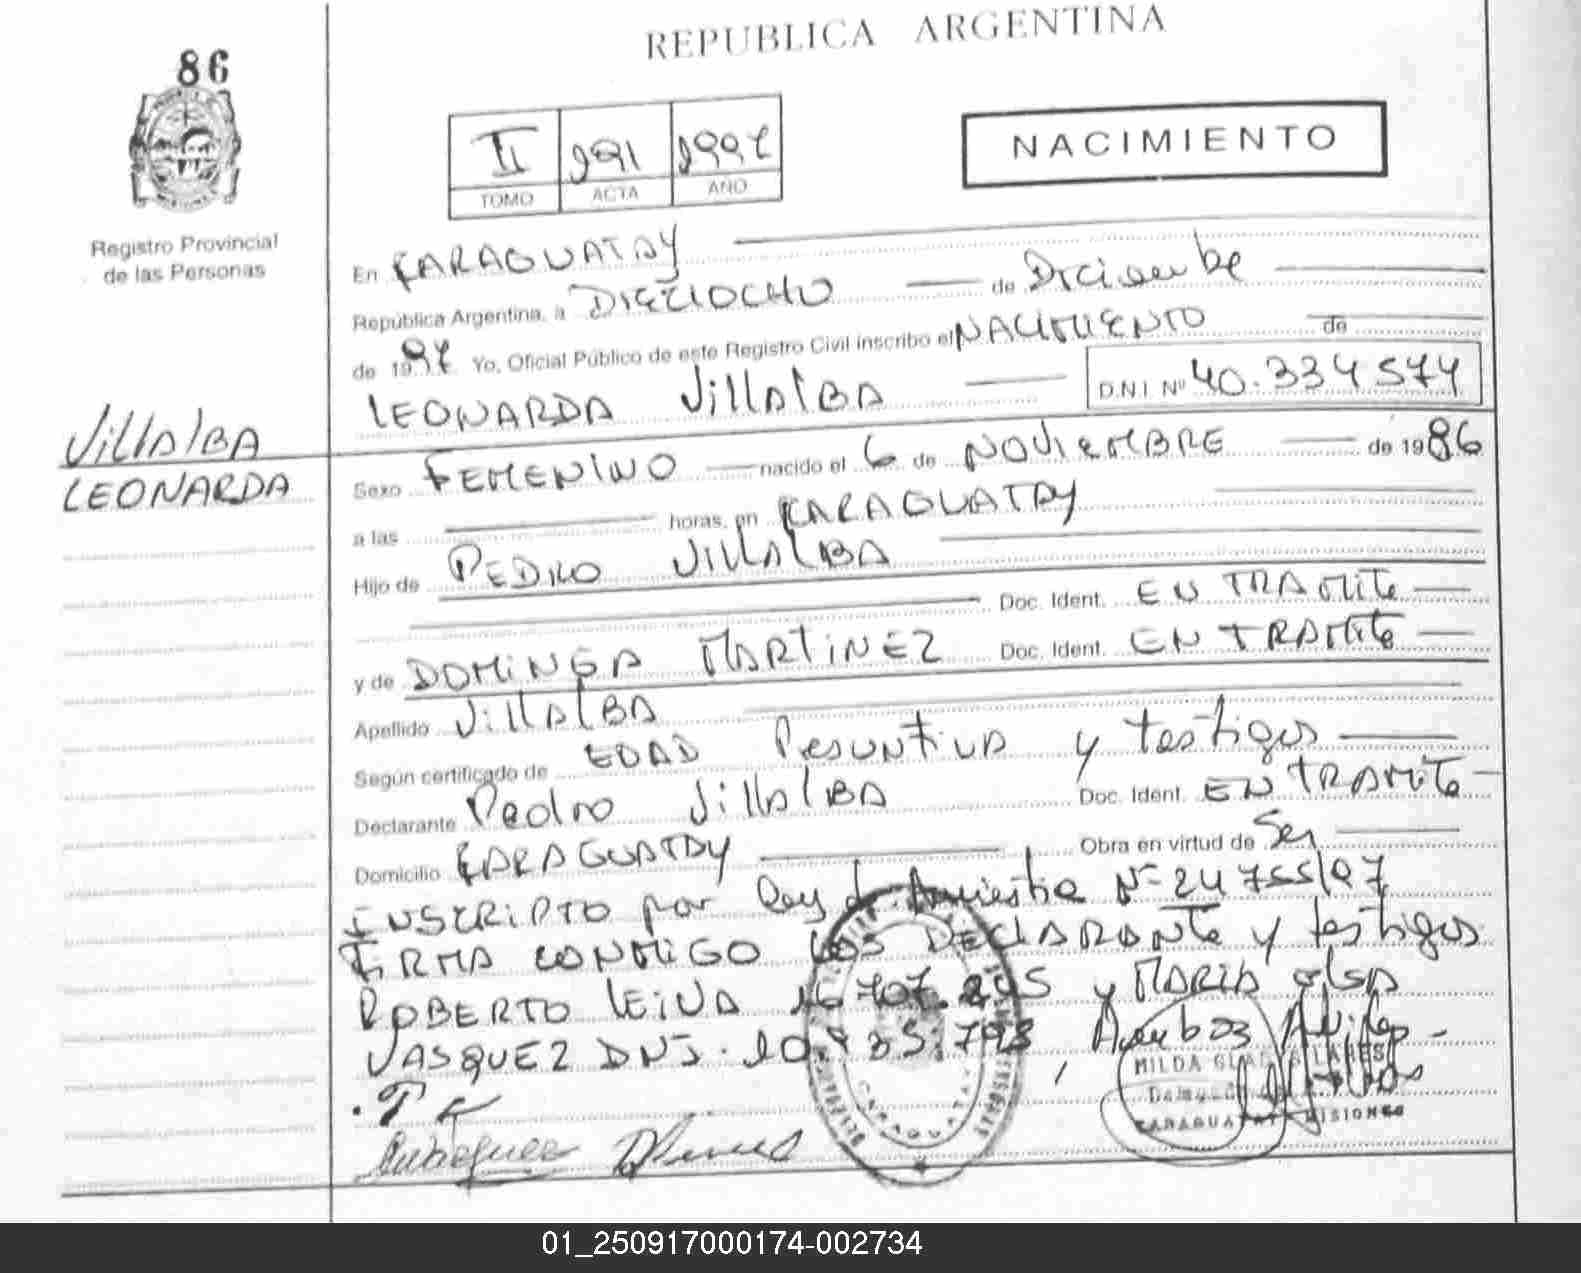 REPUBLICA ARGENTINA
86
II 191 1997
TOMO ACTA AÑO
NACIMIENTO
Registro Provincial
de las Personas
En CARAGUATAY
República Argentina, a DIECIOCHO de Diciembe
de 1997 Yo, Oficial Público de este Registro Civil inscribo el NACIMIENTO de
LEONARDA VillAlBA D.N.I. Nº 40.334574
VillAlBA
LEONARDA
Sexo FEMENINO nacido el 6 de NOViEMBRE de 1986
a las horas, en CARAGUATAY
Hijo de PEDRO VillAlBA
Doc. Ident. EN TRAMITE
y de DOMINGA MARTINEZ Doc. Ident. EN TRAMITE
Apellido VillAlBA
Según certificado de EDAD Presuntiva y testigos
Declarante Pedro VillAlBA Doc. Ident. EN TRAMITE
Domicilio CARAGUATAY Obra en virtud de Ser
INSCRIPTO por Ley de Amnistia Nº 24755/97
FIRMA CONMIGO los DECLARANTE y testigos
ROBERTO LEIVA 16.707. y MARIA OLGA
VASQUEZ DNI. 10. 35.793 Ambos
MILDA
CARAGUATAY MISIONES
01_250917000174-002734